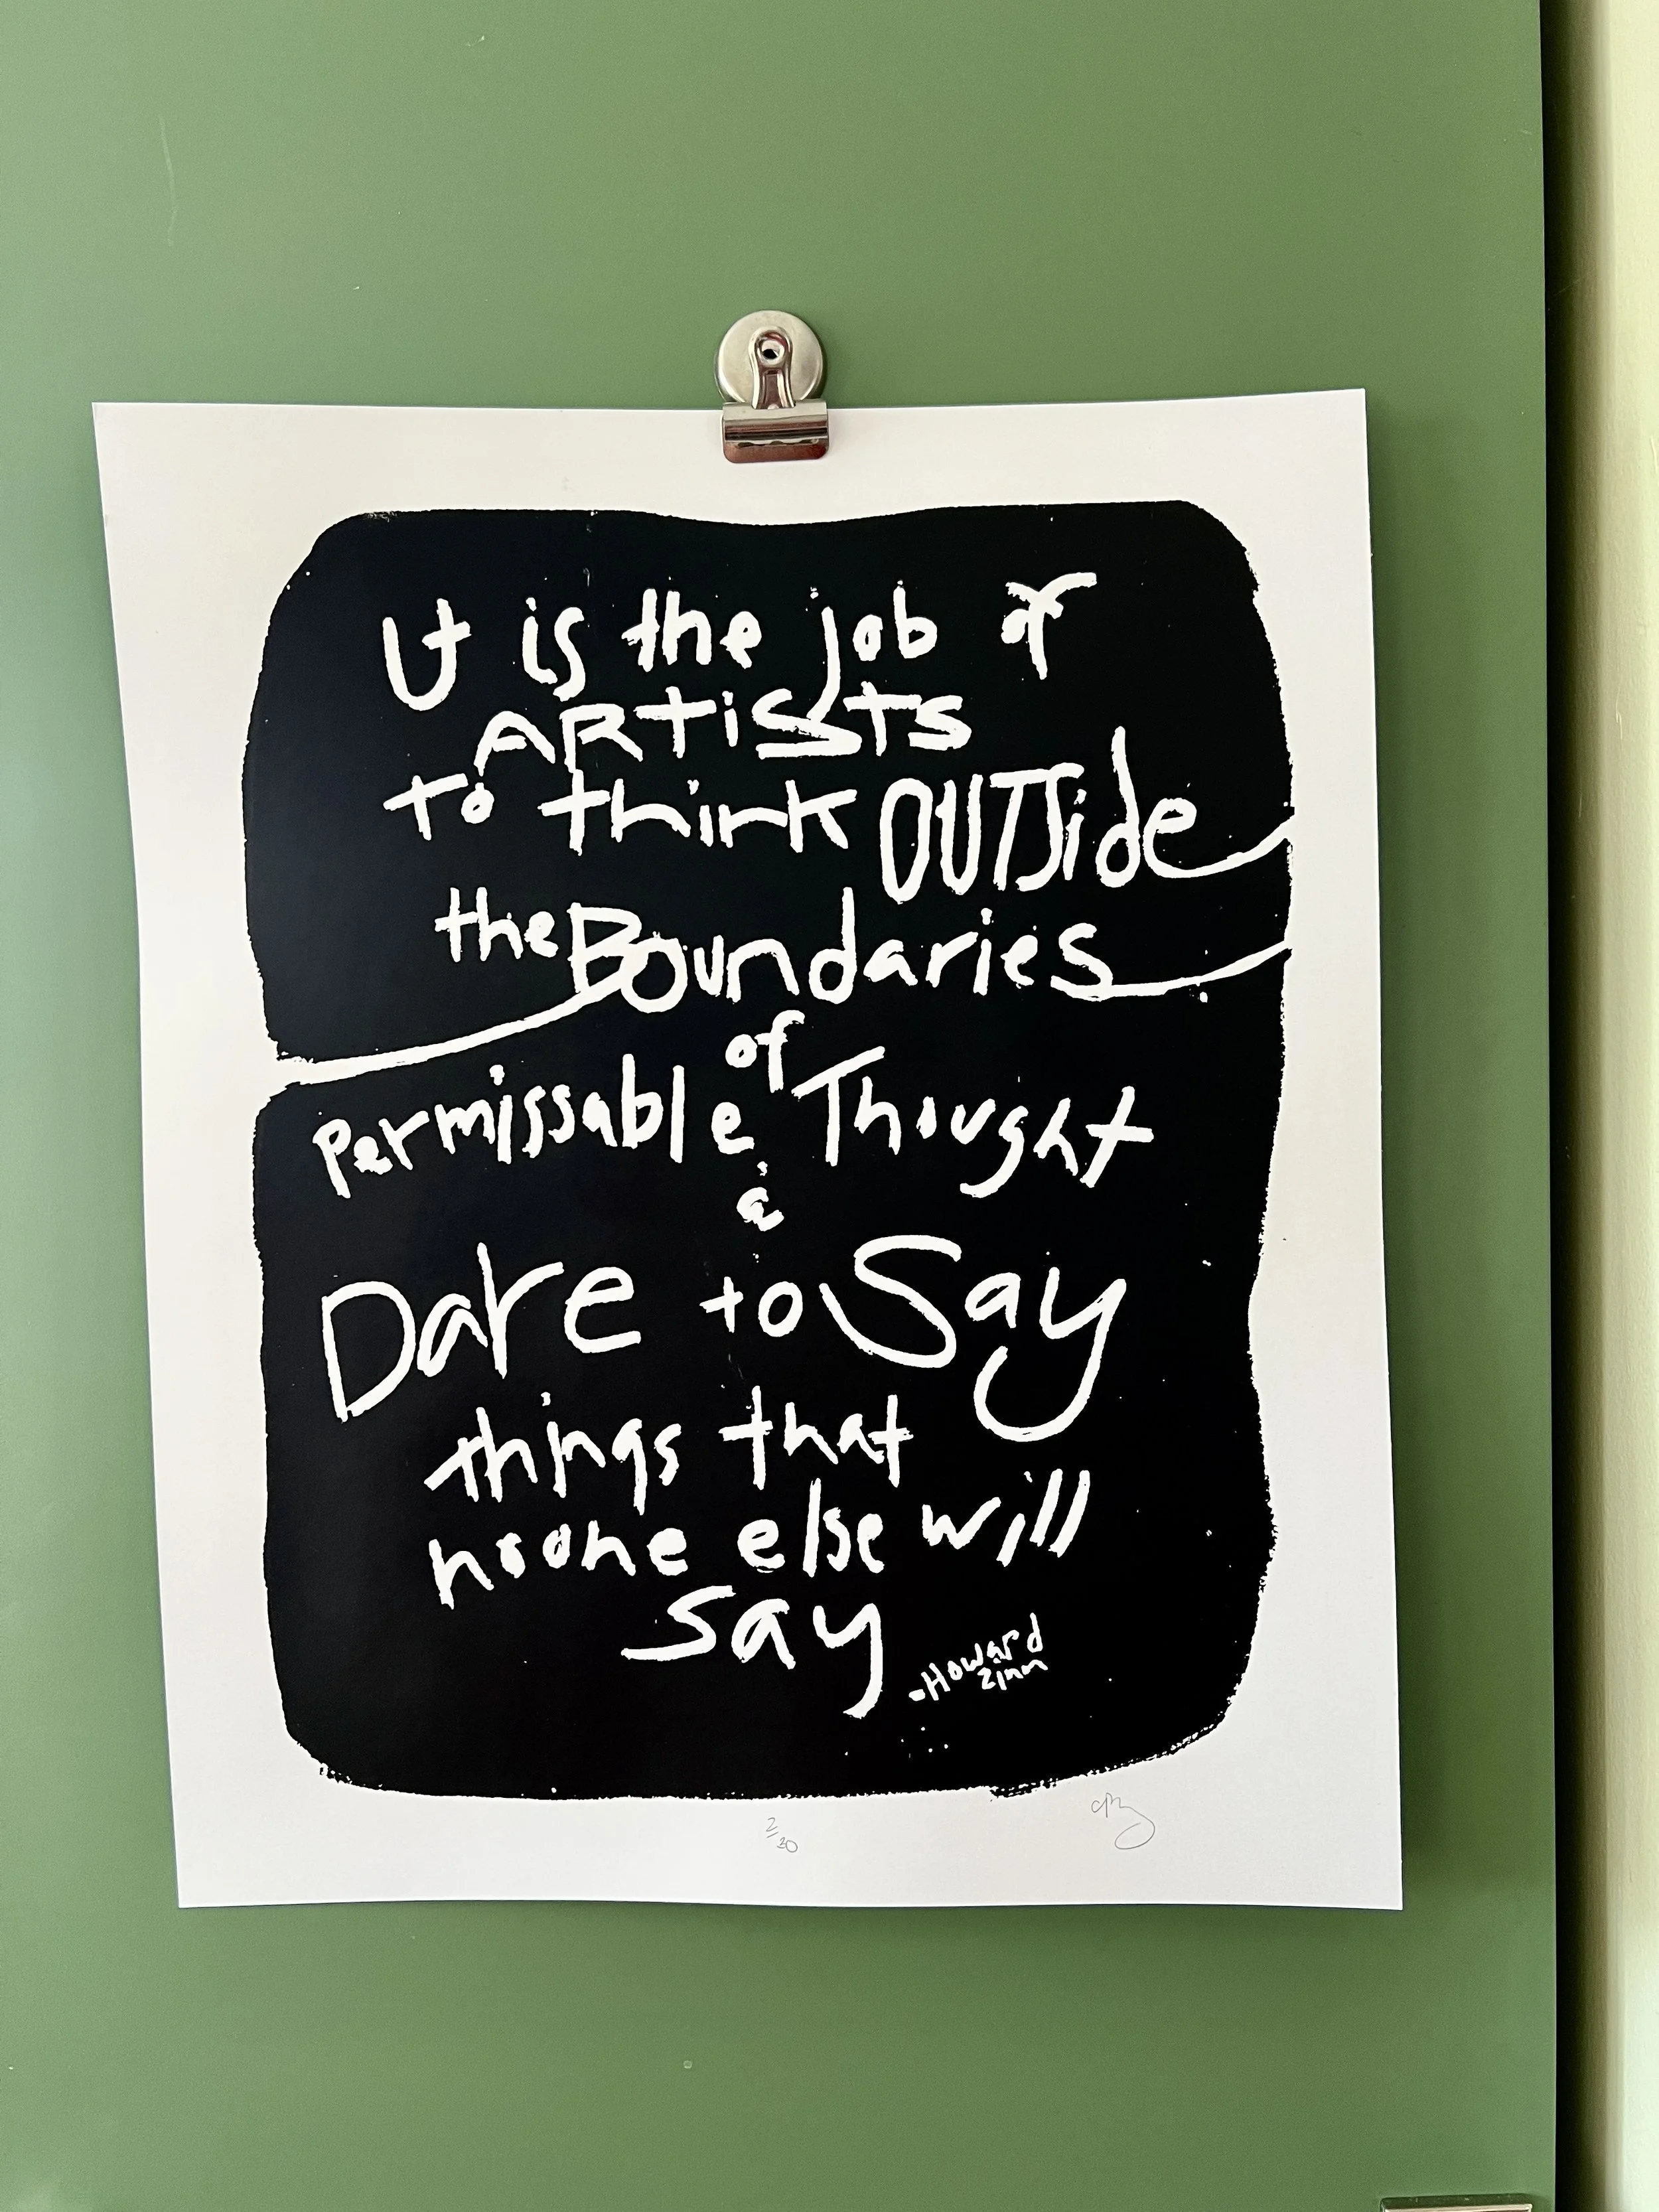 It is the job of
ARTiSts
To think OUTSide
the Boundaries
of
Permissable Thought
&
Dare to Say
things that
noone else will
say
-Howard
Zinn
2/20